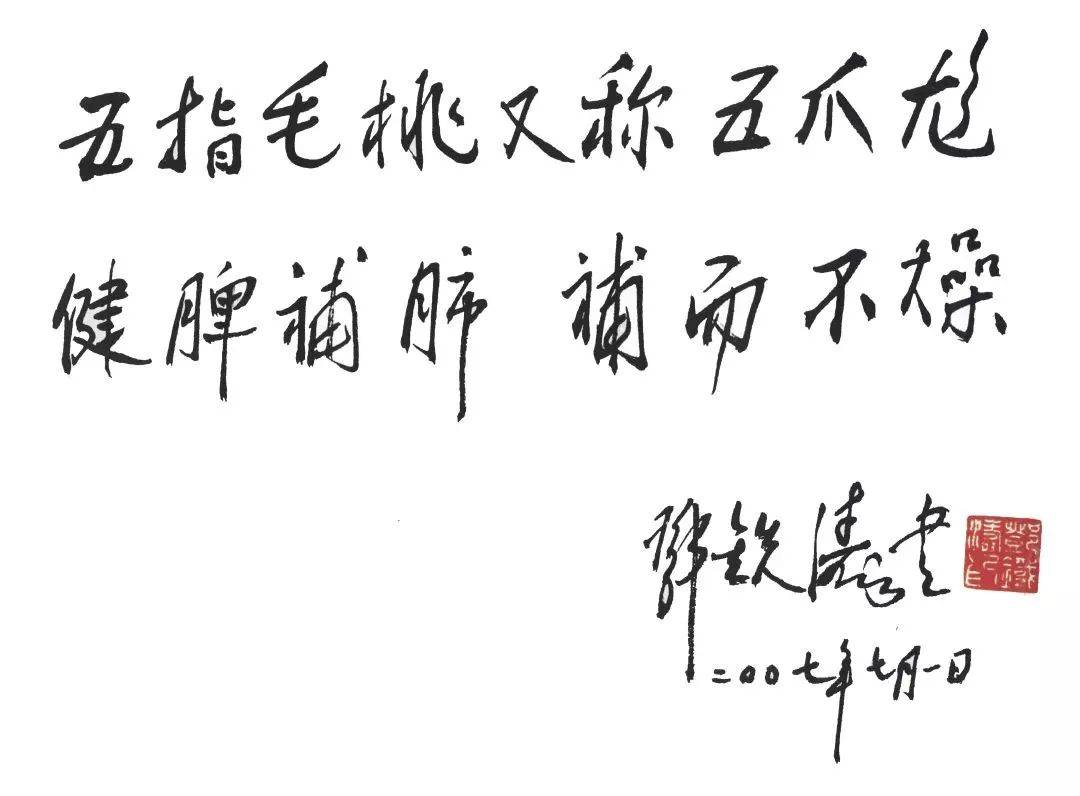 五指毛桃又称五爪尨
健脾补肺 补而不燥
邓铁涛书
二00七年七月一日